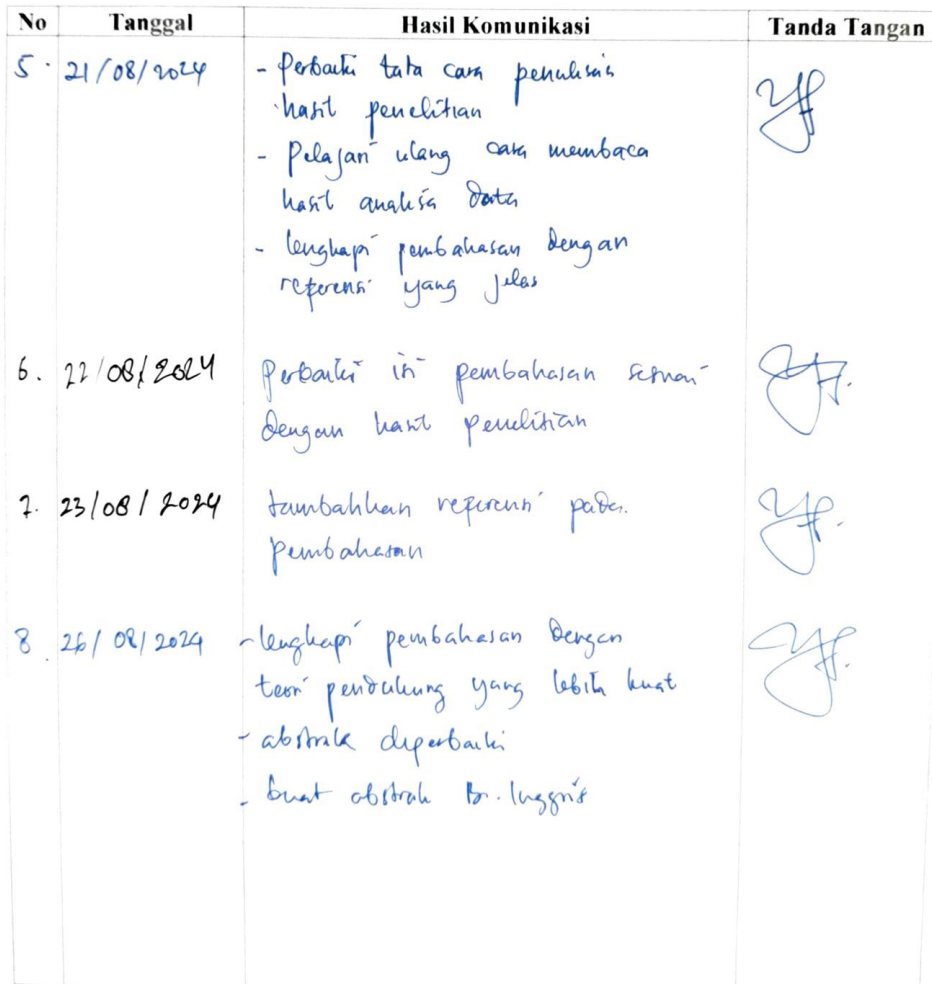 No Tanggal Hasil Komunikasi Tanda Tangan
5. 21/08/2024 - Perbaiki tata cara penulisan
hasil penelitian
- Pelajari ulang cara membaca
hasil analisa data
- lengkapi pembahasan dengan
referensi yang jelas
6. 22/08/2024 Perbaiki isi pembahasan sesuai
dengan hasil penelitian
7. 23/08/2024 tambahkan referensi pada
pembahasan
8. 26/08/2024 - lengkapi pembahasan dengan
teori pendukung yang lebih kuat
- abstrak diperbaiki
- buat abstrak B. Inggris